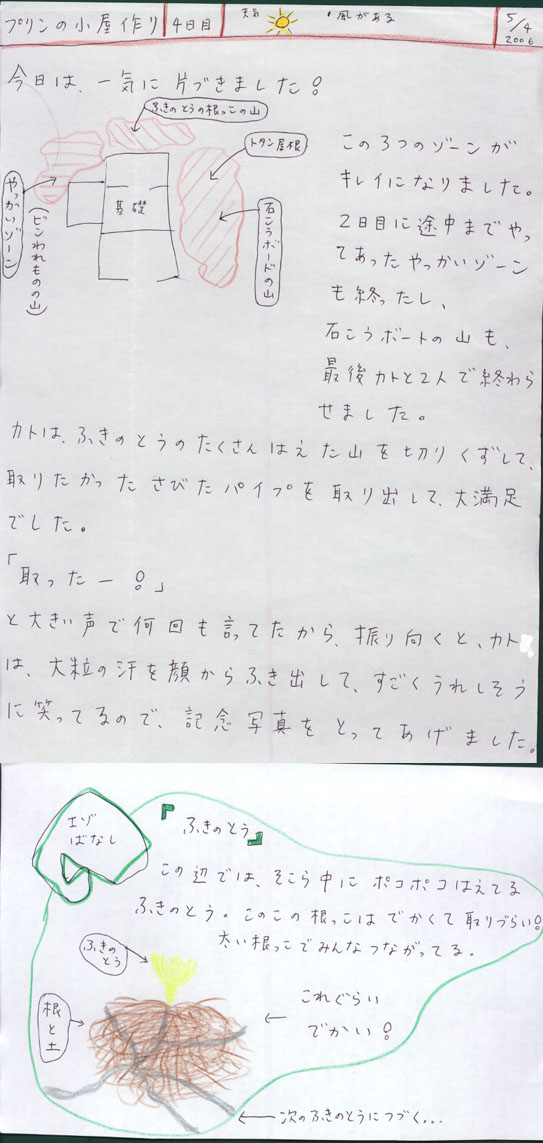 プリンの小屋作り
4日目
天気
風がある
5/4
2006
今日は、一気に片づきました!
ふきのとうの根っこの山
トタン屋根
基礎
石こうボードの山
やっかいゾーン
(ビンわれものの山)
この3つのゾーンが
キレイになりました。
2日目に途中までやっ
てあったやっかいゾーン
も終ったし、
石こうボートの山も、
最後カトと2人で終わら
せました。
カトは、ふきのとうのたくさんはえた山を切りくずして、
取りたかったさびたパイプを取り出して、大満足
でした。
「取ったー!」
と大きい声で何回も言ってたから、振り向くと、カト
は、大粒の汗を顔からふき出して、すごくうれしそう
に笑ってるので、記念写真をとってあげました。
エゾ
ばなし
『ふきのとう』
この辺では、そこら中にポコポコはえてる
ふきのとう。このこの根っこはでかくて取りづらい!
太い根っこでみんなつながってる。
ふきの
とう
根と土
これぐらい
でかい!
次のふきのとうにつづく...